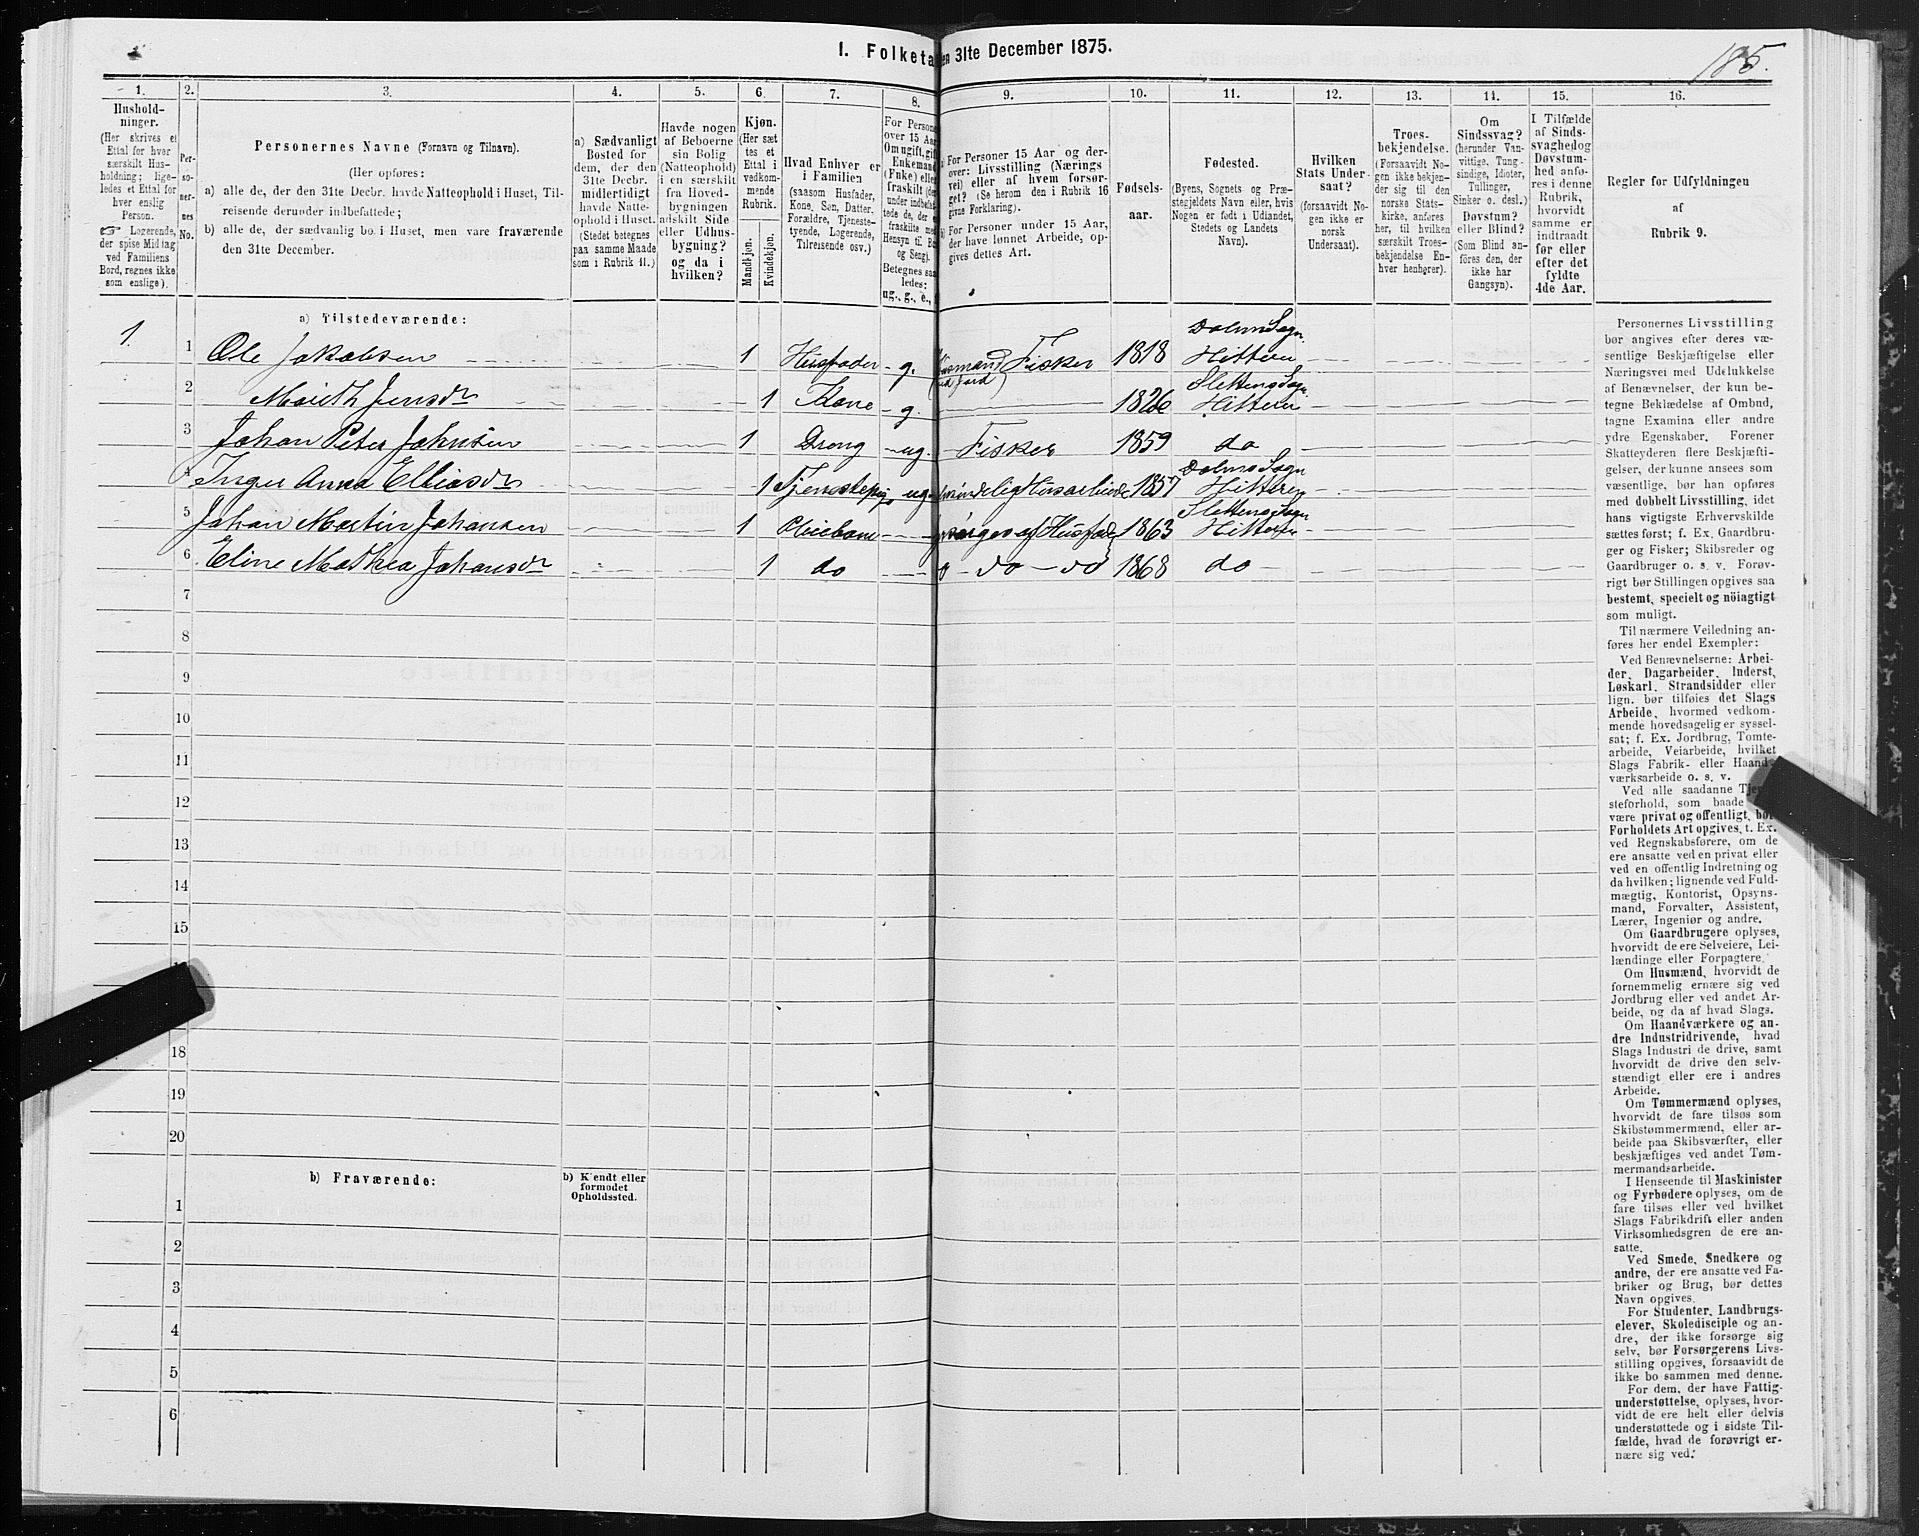 185.
1. Folketa
en 31te December 1875.
1.
2.
3.
4.
5.
6.
7.
8.
9.
10.
11.
12.
13.
14.
15.
16.
Hushold-
ninger.
(Her skrives et
Ettal for hver
særskilt Hus-
holdning; lige-
ledes et Ettal for
hver enslig
Person.
☞ Logerende,
der spise Middag
ved Familiens
Bord, regnes ikke
som enslige).
Per-
so-
ner-
nes
No.
Personernes Navne (Fornavn og Tilnavn).
(Her opføres:
a) alle de, der den 31te Decbr. havde Natteophold i Huset, Til-
reisende derunder indbefattede;
b) alle de, der sædvanlig bo i Huset, men vare fraværende
den 31te December.
a) Sædvanligt
Bosted for
dem, der den
31te Decbr.
midlertidigt
havde Natte-
ophold i Huset.
(Stedet betegnes
paa samme Maade
som i Rubrik 11.)
Havde nogen
af Beboerne
sin Bolig
(Natteophold)
i en særskilt
fra Hoved-
bygningen
adskilt Side-
eller Udhus-
bygning?
og da i
hvilken?
Kjøn.
(Her sæt-
tes et
Ettal i
vedkom-
mende
Rubrik.
Mandkjøn.
Kvindekjøn.
Hvad Enhver er
i Familien
(saasom Husfader,
Kone, Søn, Datter,
Forældre, Tjeneste-
tyende, Logerende,
Tilreisende osv.)
For Persone
over 15 Aar
Om ugift, gift
Enkemand
(Enke) eller
fraskilt (der
under indbefat-
tede de, der er
fraskilte med
Hensyn til Bo
og Seng).
Betegnes saa
ledes:
ug., g., e.,
a) For Personer 15 Aar og der-
over: Livsstilling (Nærings
vei) eller af hvem forsør-
get? (Se herom den i Rubrik 16
givne Forklaring).
b) For Personer under 15 Aar,
der have lønnet Arbeide, op-
gives dettes Art.
Fødsels-
aar.
Fødested.
(Byens, Sognets og Præ-
stegjeldets Navn eller, hvis
Nogen er født i Udlandet,
Stedets og Landets
Navn).
Hvilken
Stats Under-
saat?
(forsaavidt No-
gen ikke er
norsk
Undersaat).
Troes-
bekjendelse.
(Forsaavidt No-
gen ikke bekjen-
der sig til den
norske Stats-
kirke, anføres
her, til hvilken
særskilt Troes-
bekjendelse En-
hver henhører).
Om
Sindssvag?
(herunder Van-
vittige, Tung-
sindige, Idioter,
Tullinger,
Sinker o. desl.)
Døvstum?
eller Blind?
(Som Blind an-
føres den, der
ikke har
Gangsyn).
I Tilfælde
af Sinds-
svaghed og
Døvstum-
hed anfø-
res i denne
Rubrik,
hvorvidt
samme er
indtraadt
før eller
efter det
fyldte
4de Aar.
Regler for Udfyldningen
af
Rubrik 9.
a) Tilstedeværende:
1.
1 Ole Jakobsen 1 Husfader g. Fisker 1818 Dolms Sogn Hitteren
2 Marith Jensdr 1 Kone g. 1826 Slettens Sogn Hitteren
3 Johan Peter Johnsen 1 Dreng ug. Fisker 1859 do
4 Inger Anna Elliasdr 1 Tjenestepig ug. 1857 Dolms Sogn Hitteren
5 Johan Martin Johansen 1 Pleiebarn forsørges af Husfader 1863 Slettens Sogn Hitteren
6 Eline Mathea Johansdr 1 do do do 1868 do
7
8
9
10
11
12
13
14
15
18
19
20
b) Fraværende:
b) Kjendt eller
formodet
Opholdssted.
1
2
3
4
5
6
Personernes Livsstilling
bør angives efter deres væ-
sentlige Beskjæftigelse eller
Næringsvei med Udelukkelse
af Benævnelser, der kun be-
tegne Beklædelse af Ombud,
tagne Examina eller andre
ydre Egenskaber. Forener
Skatteyderen flere Beskjæfti-
gelser, der kunne ansees som
væsentlige, bør han opføres
med dobbelt Livsstilling, idet
hans vigtigste Erhvervskilde
sættes først; f. Ex. Gaardbru-
ger og Fisker; Skibsreder og
Gaardbruger o. s. v. Forøv-
rigt bør Stillingen opgives saa
bestemt, specielt og nöiagtigt
som muligt.
Til nærmere Veiledning an-
føres her endel Exempler:
Ved Benævnelserne: Arbei-
der, Dagarbeider, Inderst,
Løskarl, Strandsidder eller
lign. bør tilføies det Slags
Arbeide, hvormed vedkom-
mende hovedsagelig er syssel-
sat; f. Ex. Jordbrug, Tomte-
arbeide, Veiarbeide, hvilket
Slags Fabrik- eller Haand-
værksarbeide o. s. v.
Ved alle saadanne Tjen
steforhold, som baade
være privat og offentligt, bør
Forholdets Art opgives, t. Ex.
ved Regnskabsførere, om de
ere ansatte ved en privat eller
ved en offentlig Indretning og
da hvilken; lignende ved Fuld-
mægtig, Kontorist, Opsyns-
mand, Forvalter, Assistent,
Lærer, Ingeniør og andre.
Om Gaardbrugere oplyses,
hvorvidt de ere Selveiere, Lei-
lændinge eller Forpagtere.
Om Husmænd, hvorvidt de
fornemmelig ernære sig ved
Jordbrug eller ved andet Ar-
beide, og da af hvad Slags.
Om Haandværkere og an-
dre Industridrivende, hvad
Slags Industri de drive, samt
hvorvidt de drive den selv-
stændigt eller ere i andres
Arbeide.
Om Tømmermænd oplyses,
hvorvidt de fare tilsøs som
Skibstømmermænd, eller ar-
beide paa Skibsværfter, eller
beskjæftiges ved andet Tøm-
mermandsarbeide.
I Henseende til Maskinister
og Fyrbødere oplyses, om de
fare tilsøs eller ved hvilket
Slags Fabrikdrift eller anden
Virksomhedsgren de ere an-
satte.
Ved Smede, Snedkere og
andre, der ere ansatte ved Fa-
briker og Brug, bør dettes
Navn opgives.
For Studenter, Landbrugs-
elever, Skoledisciple og an-
dre, der ikke forsørge sig
selv, bør Forsørgerens Livs-
stilling opgives, forsaavidt de
ikke bo sammen med denne.
For dem, der have Fattig-
understøttelse, oplyses, hvor-
vidt de ere helt eller delvis
understøttede og i sidste Til-
fælde, hvad de forøvrigt er-
nære sig ved.